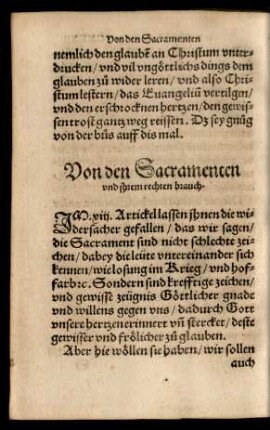 Von den Sacramenten
nemlich den glaubē an Christum vnter-
drucken / vnd vil vngöttlichs dings dem
glauben zů wider leren / vnd also Chri-
stum lestern / das Euangeliū vertilgen /
vnd den erschrocknen hertzen / den gewis-
sen trost gantz weg reissen. Dz sey gnůg
von der bůs auff dis mal.
Von den Sacramenten
vnd jhrem rechten brauch.
IM. xiij. Artickel lassen jhnen die wi-
dersacher gefallen / das wir sagen /
die Sacrament sind nicht schlechte zei-
chen / dabey die leute vntereinander sich
kennen / wie losung im Krieg / vnd hof-
farb ꝛc. Sondern sind krefftige zeichen /
vnd gewisse zeügnis Göttlicher gnade
vnd willens gegen vns / dadurch Gott
vnsere hertzen erinnert vñ stercket / deste
gewisser vnd frölicher zů glauben.
Aber hie wöllen sie haben / wir sollen
auch